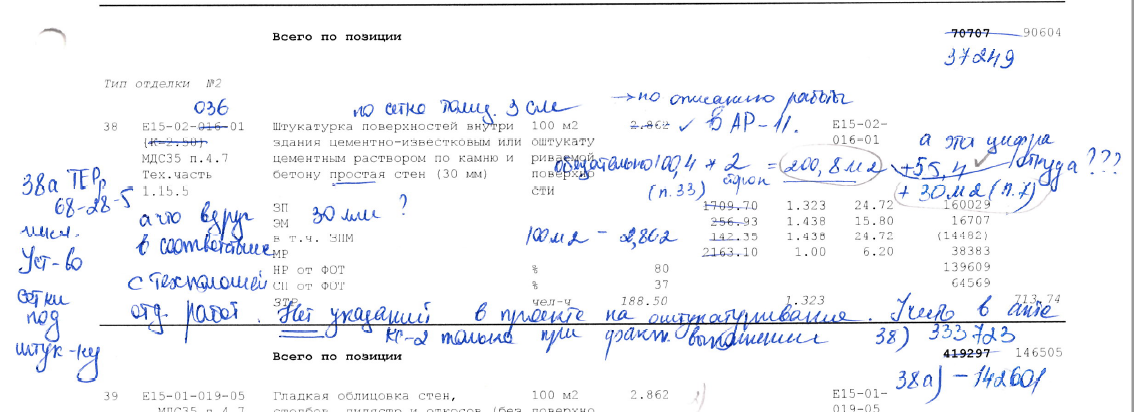 Всего по позиции 70707 90604
37249
Тип отделки №2
036 по сетке толщ. 3 см → по описанию работы
38 Е15-02-016-01 Штукатурка поверхностей внутри 100 м2 2.862 ✓ в АР-11. Е15-02-
(К=2.50) здания цементно-известковым или оштукату 016-01 а эта цифра
МДС35 п.4.7 цементным раствором по камню и риваемой 100,4 * 2 = 200,8 м2 +55,4 откуда ???
Тех.часть бетону простая стен (30 мм) поверхно (п.33) сторон + 30м2 (п.7)
38а ТЕРр 1.15.5 сти
68-28-5 ЗП 1709.70 1.323 24.72 160029
а что вдруг 30 мм ? ЭМ 256.93 1.438 15.80 16707
в соответствие в т.ч. ЗПМ 100м2 - 2,862 142.35 1.438 24.72 (14482)
Уст-во МР 2163.10 1.00 6.20 38383
с технологией НР от ФОТ % 80 139609
сетки СП от ФОТ % 37 64569
под отд. работ. ЗТР чел-ч 188.50 1.323 713.74
Нет указаний в проекте на оштукатуривание. Учесть в акте
штук-ку КС-2 только при факт. выполнении 38) 333723
Всего по позиции 419297 146505
38а) - 142601
39 Е15-01-019-05 Гладкая облицовка стен, 100 м2 2.862 Е15-01-
МДС35 п.4.7 столбов, пилястр и откосов (без поверхно 019-05